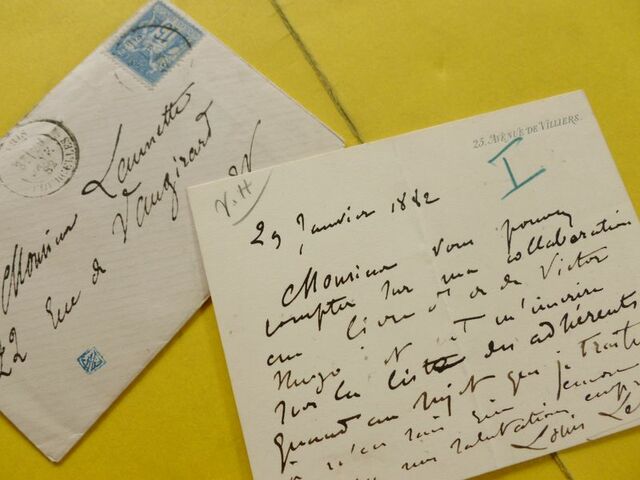 Monsieur Launette
22 Rue de Vaugirard
PARIS
25, AVENUE DE VILLIERS.
I
V.H
29 Janvier 1882
Monsieur vous pouvez
compter sur ma collaboration
au livre d'or de Victor
Hugo et m'inscrire
sur la liste des adhérents
Quand au sujet que je traite
je n'en sais rien
salutations
Louis Le